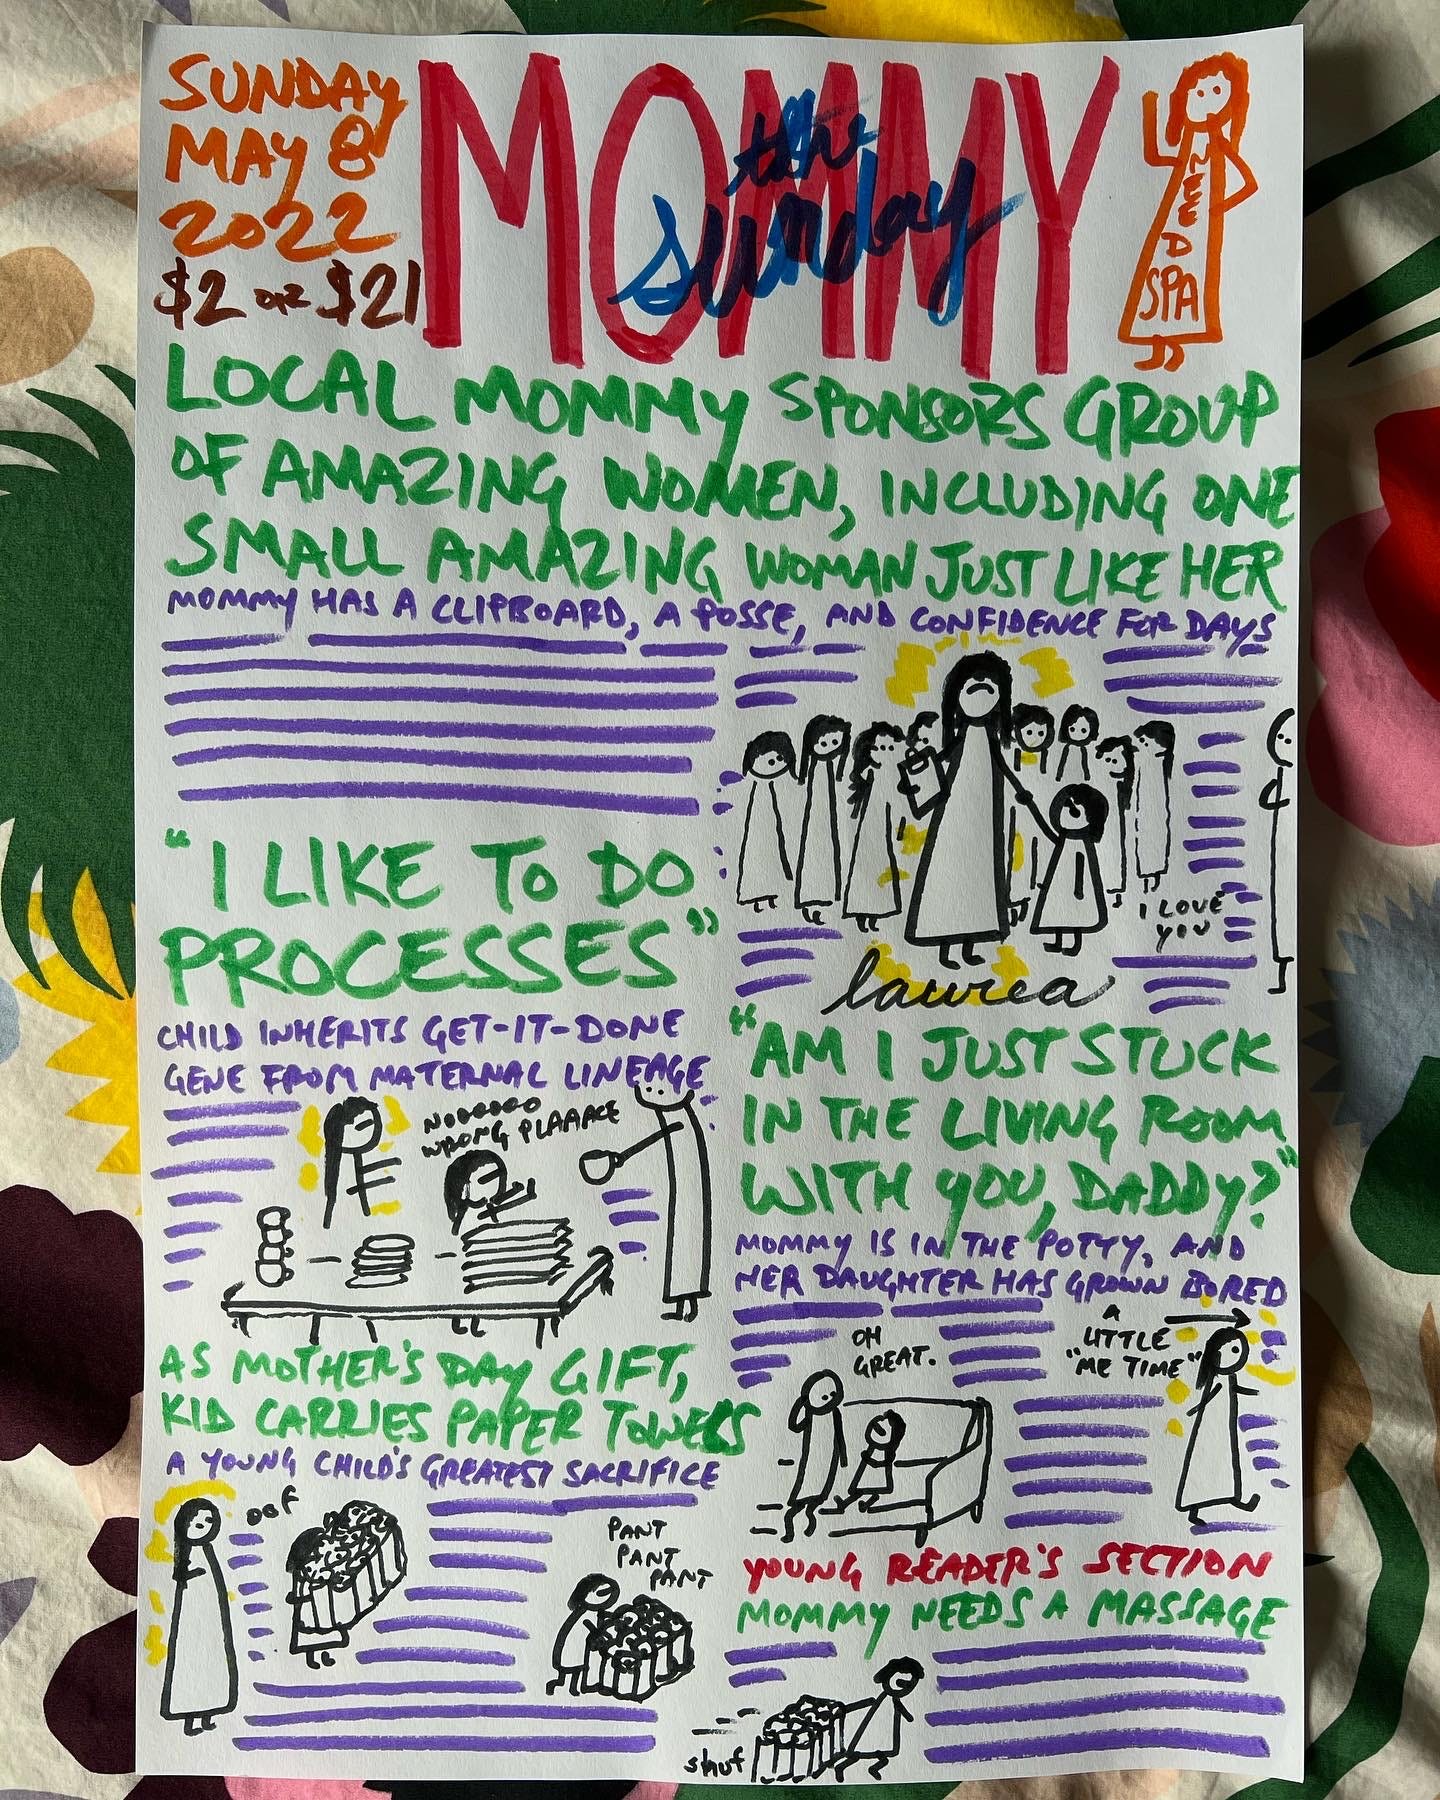 SUNDAY
MAY 8
2022
$2 OR $21
MOMMY
the
sunday
I NEED
SPA
LOCAL MOMMY SPONSORS GROUP
OF AMAZING WOMEN, INCLUDING ONE
SMALL AMAZING WOMAN JUST LIKE HER
MOMMY HAS A CLIPBOARD, A POSSE, AND CONFIDENCE FOR DAYS
I LOVE
YOU
laurea
"I LIKE TO DO
PROCESSES"
CHILD INHERITS GET-IT-DONE
GENE FROM MATERNAL LINEAGE
NOOOOOO
WRONG PLAAACE
AS MOTHER'S DAY GIFT,
KID CARRIES PAPER TOWELS
A YOUNG CHILD'S GREATEST SACRIFICE
OOF
PANT
PANT
PANT
"AM I JUST STUCK
IN THE LIVING ROOM
WITH YOU, DADDY?"
MOMMY IS IN THE POTTY, AND
HER DAUGHTER HAS GROWN BORED
OH
GREAT.
A
LITTLE
"ME TIME"
YOUNG READER'S SECTION
MOMMY NEEDS A MASSAGE